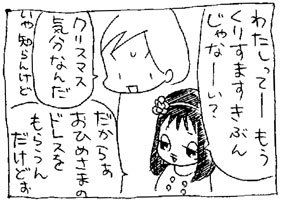 わたしってーもう
くりすますきぶん
じゃなーい？
クリスマス
気分なんだ
いや知らんけど
だからぁ
おひめさまの
ドレスを
もらうん
だけどぉ